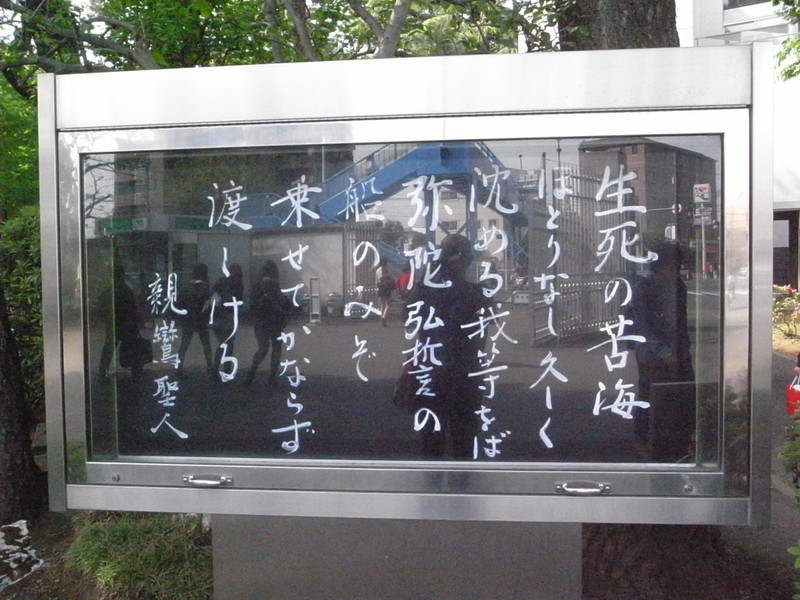 生死の苦海
ほとりなし久しく
沈める我等をば
弥陀弘誓の
船のみぞ
乗せてかならず
渡しける
親鸞聖人